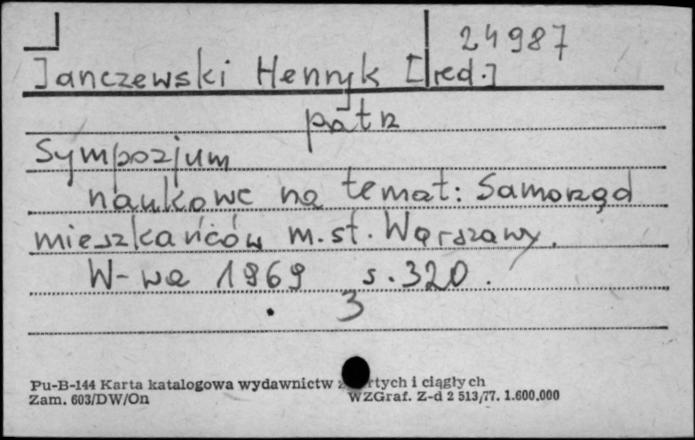 24987
Janczewski Henryk [red.]
patrz
Sympozjum
naukowe na temat: Samorząd
mieszkańców m.st. Warszawy.
W-wa 1969 s. 320.
3
Pu-B-144 Karta katalogowa wydawnictw i ciągłych
Zam. 603/DW/On WZGraf. Z-d 2 513/77. 1.600.000